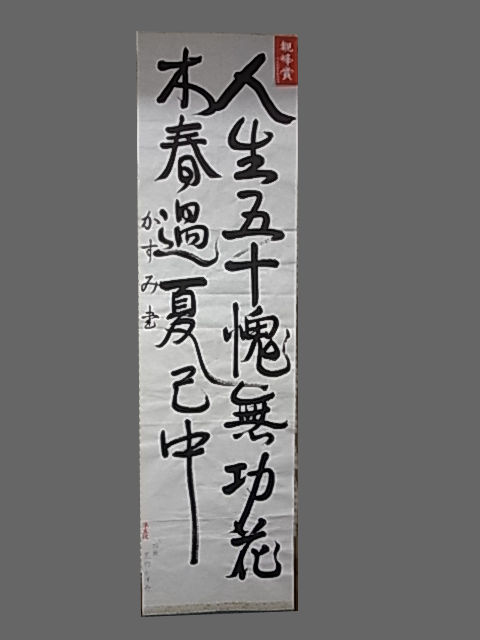 人生五十愧無功花
木春過夏已中
かすみ書
観峰賞